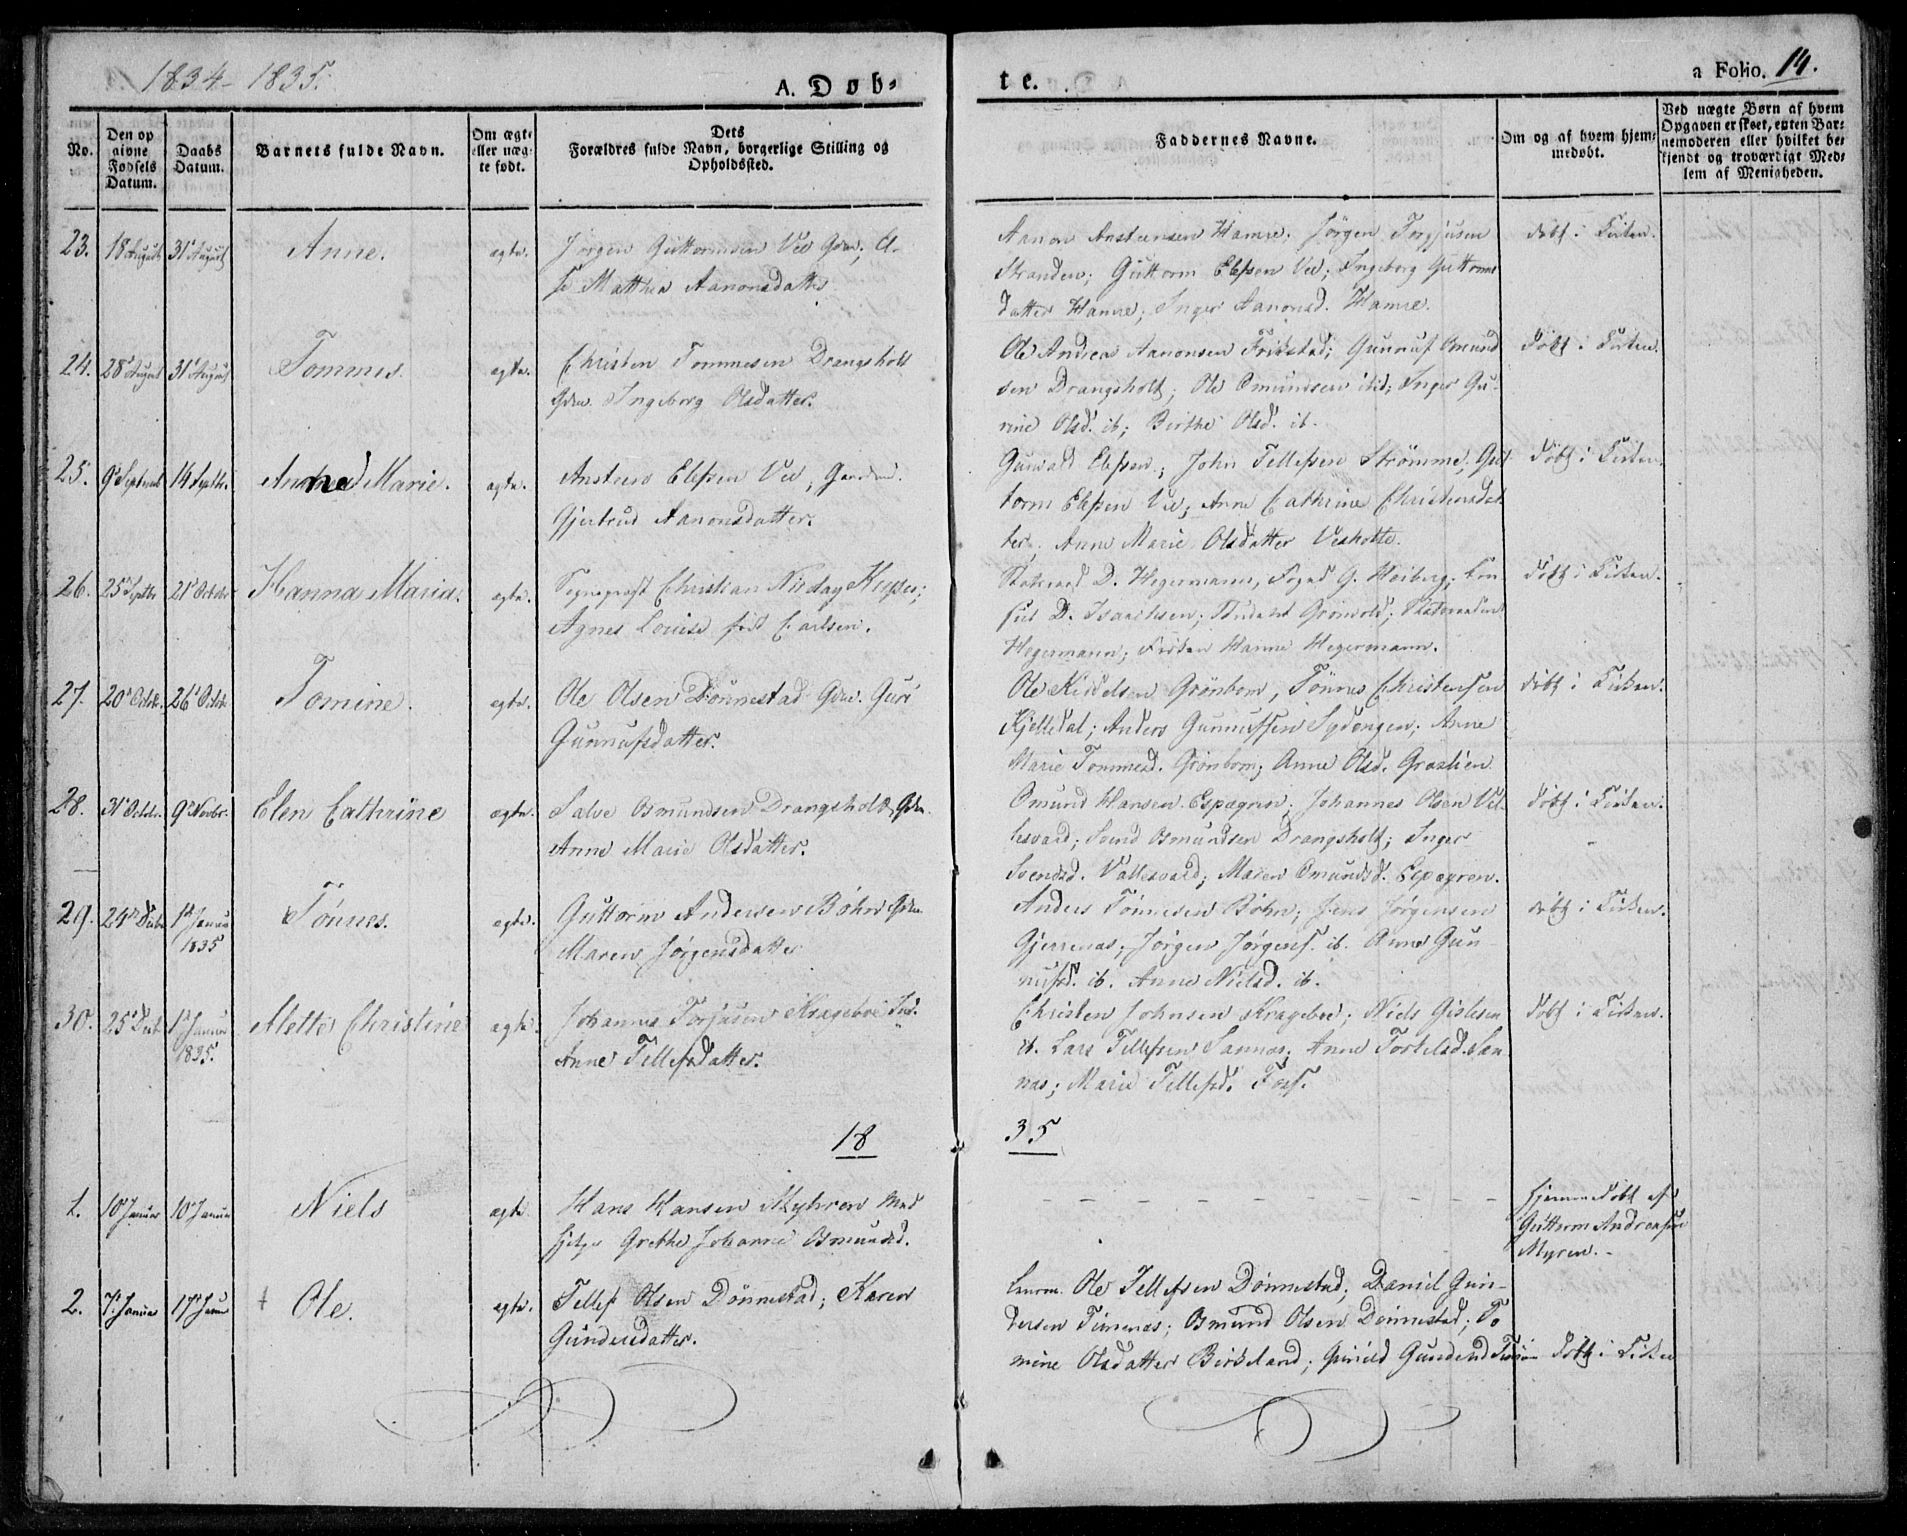 1834-1835.
A. Døb-
te.
a Folio. 14.
No.
Den op givne Fødsels Datum.
Daabs Datum.
Barnets fulde Navn.
Om ægte eller uægte født.
Dets
Forældres fulde Navn, borgerlige Stilling og Opholdssted.
Faddernes Navne.
Om og af hvem hjemmedøbt.
Ved uægte Børn af hvem Opgaven er skeet, enten Barnemoderen eller hvilket bekjendt og troværdigt Medlem af Menigheden.
23. 18 August 31 August Anne. ægte. Jørgen Guttormsen Vee Gdm;
Matthea Aanonsdatter
Aanon Anstensen Hamre; Jörgen Torjusen
Stranden; Guttorm Elefsen Vee; Ingeborg Guttorms
datter Hamre; Inger Aanonsd. Hamre.
døbt i Kirken.
24. 28 August 31 August Tommes. ægte. Christen Tommesen Drangsholt
Gdm. Ingeborg Olsdatter.
Ole Andrea Aanonsen Frikstad; Gunnuf Omund
sen Drangsholt; Ole Omundsen ibid; Inger Gu-
rine Olsd. ib; Birthe Olsd. ib.
døbt i Kirken.
25. 9 Septemb 14 Septbr. Anne Marie. ægte. Anstein Elefsen Vee, Gaardm.
Gjertrud Aanonsdatter.
Gunvald Elefsen; John Tellefsen Strømme; Gut
torm Elefsen Vee; Anne Cathrine Christensdat
ter; Anne Marie Olsdatter
døbt i Kirken.
26. 25 Septbr 21 October Hanna Maria. ægte. Sognepræst Christian Nicolay Keyser;
Agnes Louise født Carlsen.
Statsraad D. Hegermann, Foged G. Heiberg; Con
sul D. Isaachsen; Student Grönvold; Statsraadinde
Hegermann; Frøken Hanne Hegermann.
døbt i Kirken.
27. 20 Octob. 26 Octob. Tomine. ægte. Ole Olsen Dönnestad Gdm. Guri
Gunnufsdatter.
Ole Kittelsen Grönbom, Tönnes Christensen
Kjelledal; Anders Gunnufsen Sydengen; Anne
Marie Tommesd. Grönbom; Anne Olsd. Graslien
døbt i Kirken.
28. 31 Octobr. 9 Novbr. Elen Cathrine ægte. Salve Osmundsen Drangsholt Gdm.
Anne Marie Olsdatter.
Omund Hansen Espegren; Johannes Olsen Val
lesverd; Svend Osmundsen Drangsholt; Inger
Svendsd. Vallesverd; Maren Omundsd. Espegren.
døbt i Kirken.
29. 24 Decbr 1 Januar 1835 Tönnes. ægte. Guttorm Andersen Bøhn Gdm
Maren Jørgensdatter
Anders Tönnesen Bøhn; Jens Jörgensen
Gjerrenæs; Jörgen Jörgens. ib. Anne Gun
nufsd. ib. Anne Nielsd. ib.
døbt i Kirken.
30. 25 Decb. 1 Januar 1835. Mette Christine ægte. Johannes Torjusen Kragebøe Ind.
Anne Tellefsdatter.
Christen Johnsen Kragebøe; Niels Gislesen
ib. Lars Tellefsen Sannæs; Anne Torkelsd. San
næs; Marie Tellefsd. Foss.
døbt i Kirken.
18 35
1. 10 Januar 10 Januar Niels ægte. Hans Hansen Myhren med
hjelp. Grethe Johanne Osmundsd.
hjemmedøbt af
Guttorm Andreasen
Myren.
2. 7 Januar 17 Januar Ole. ægte. Tellef Olsen Dönnestad; Karen
Gundersdatter.
Ole Tellefsen Dönnestad; Daniel Gun-
dersen Timenæs; Osmund Olsen Dönnestad; To
mine Olsdatter Birkeland; Gunild Gundersd
døbt i Kirken